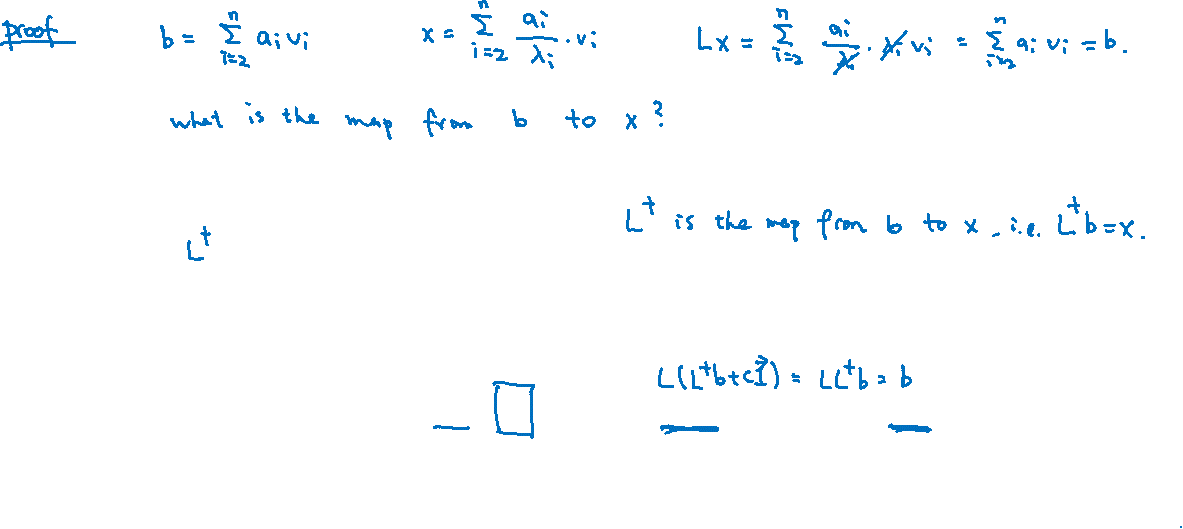 proof b = Σ_{i=2}^{n} a_i v_i x = Σ_{i=2}^{n} a_i/λ_i · v_i Lx = Σ_{i=2}^{n} a_i/λ_i · λ_i v_i = Σ_{i=2}^{n} a_i v_i = b.
what is the map from b to x?
L† is the map from b to x, i.e. L†b = x.
L†
L(L†b + c1⃗) = LL†b = b